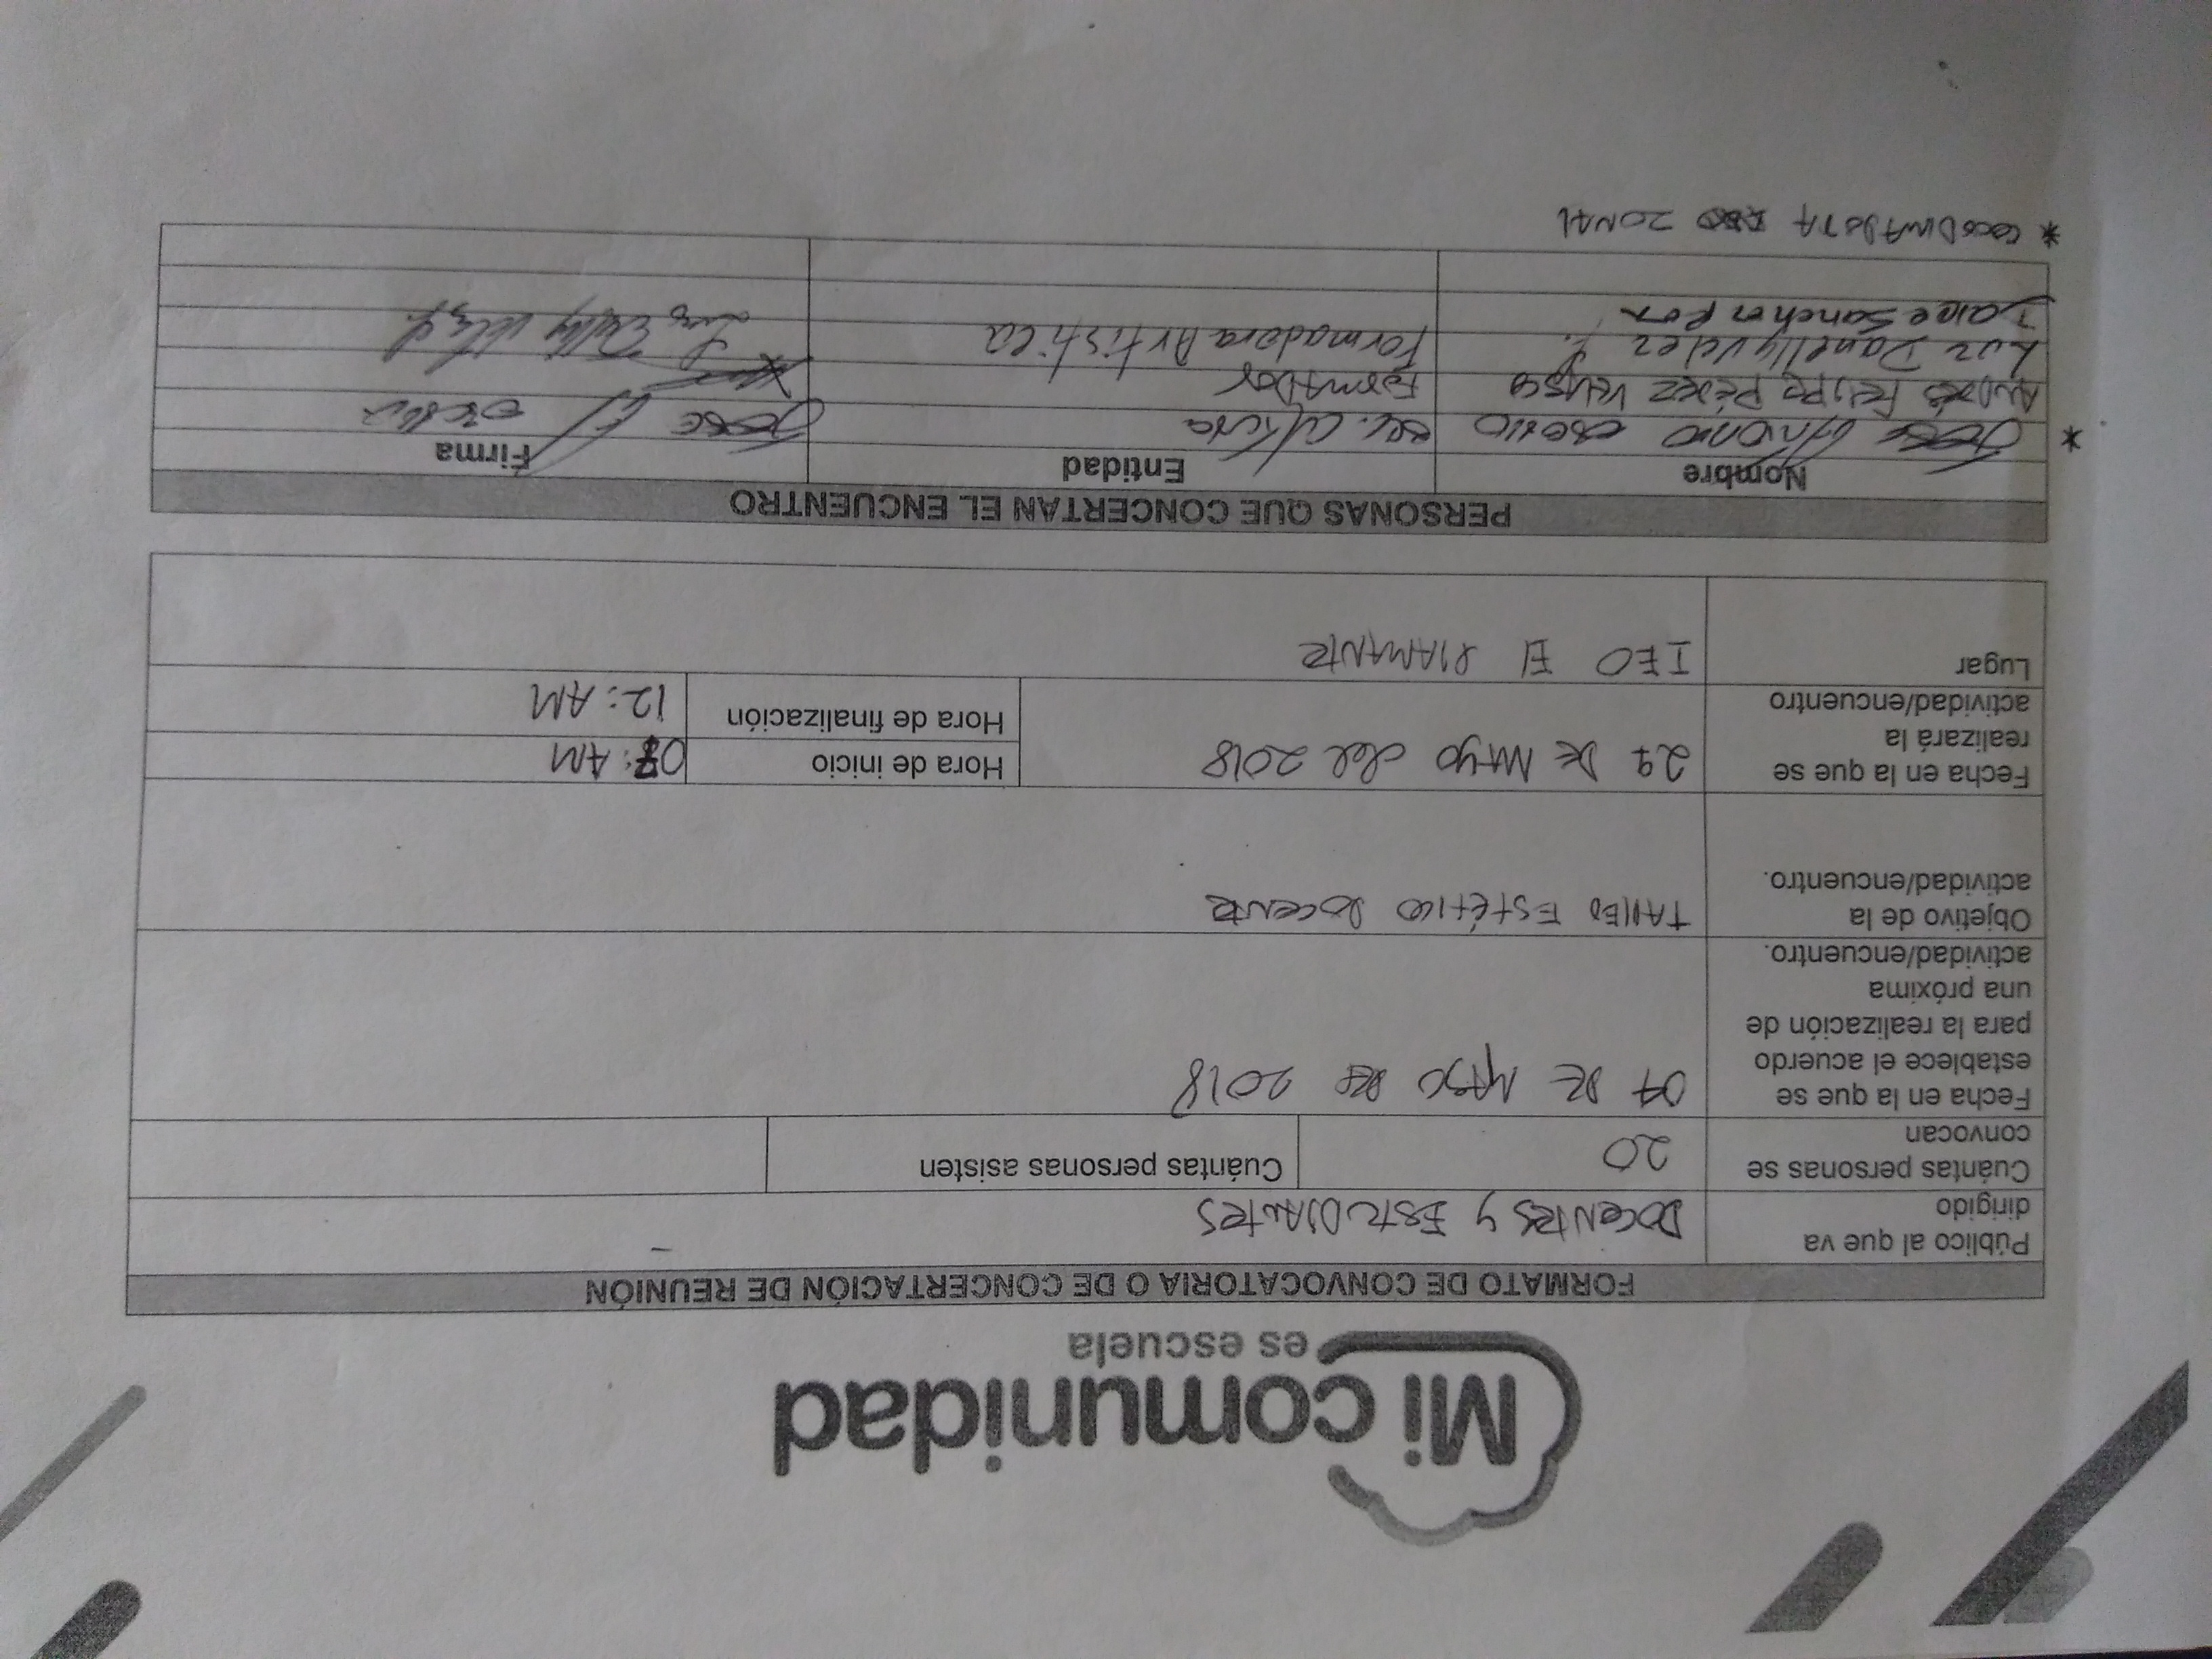 Mi comunidad
es escuela
FORMATO DE CONVOCATORIA O DE CONCERTACIÓN DE REUNIÓN
Público al que va
dirigido
DOCENTES y ESTUDIANTES
Cuántas personas se
convocan
20
Cuántas personas asisten
Fecha en la que se
establece el acuerdo
para la realización de
una próxima
actividad/encuentro.
04 DE MAYO DEL 2018
Objetivo de la
actividad/encuentro.
Estético DOCENTE
Fecha en la que se
realizará la
actividad/encuentro
DE MAYO del 2018
Hora de inicio
07: AM
Hora de finalización
12: AM
Lugar
IEO El DIAMANTE
PERSONAS QUE CONCERTAN EL ENCUENTRO
Nombre
Entidad
Firma
* JOSE Antonio OSORIO
sec. cultura
JOSE
Andrés Felipe Pérez Velasco
FORMADOR
Luz Danelly Velez
Formadora Artistica
Luz
Sanchez
* ZONAL